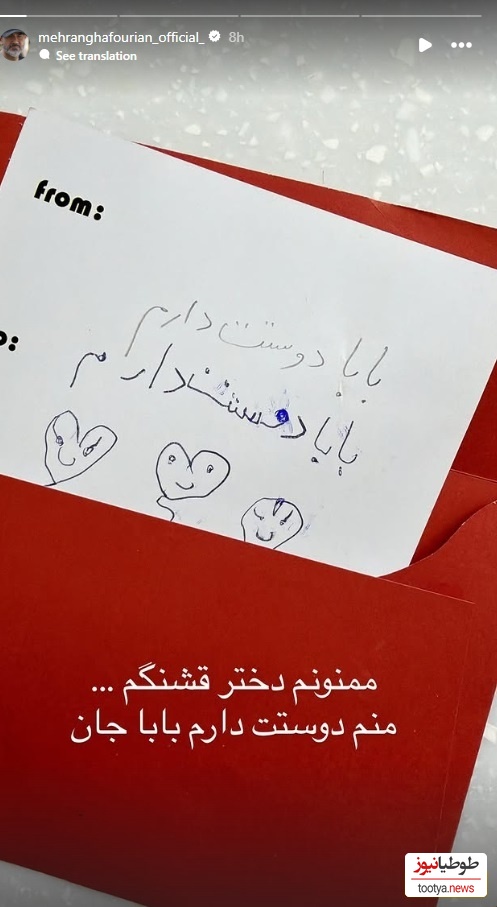 mehranghafourian_official_ 8h
See translation
from:
o:
بابا دوستت دارم
بابا دوستت دارم
ممنونم دختر قشنگم ...
منم دوستت دارم بابا جان
طوطیانیوز
tootya.news